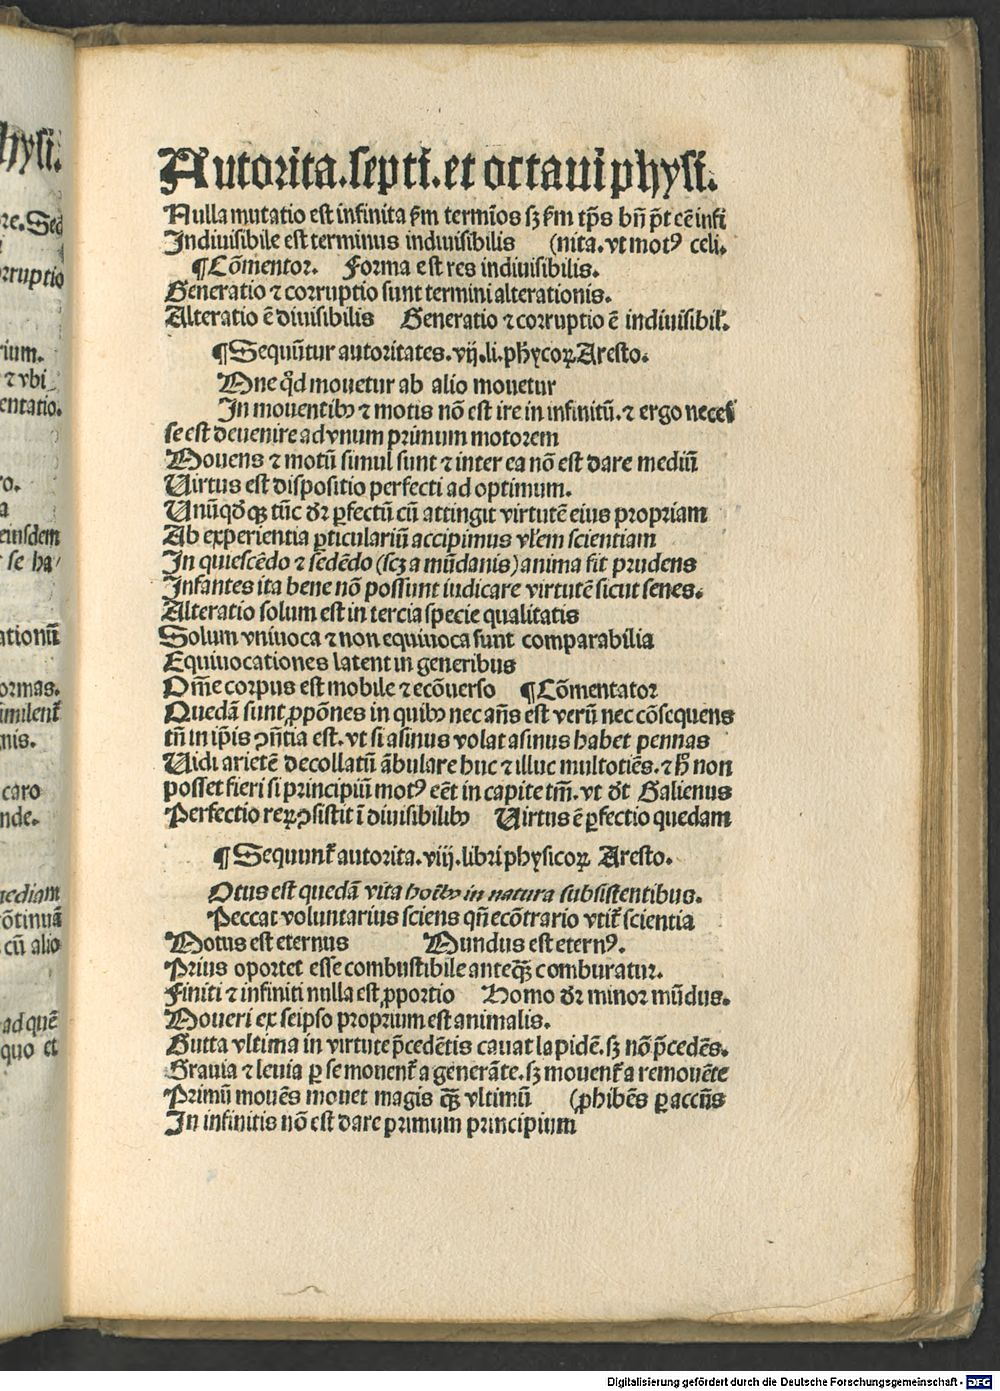 Autorita.septi.et octaui physi.
Nulla mutatio est infinita ẜm termīos sꝫ ẜm tp̄s bn̄ p̄t eē infi
Indiuisibile est terminus indiuisibilis (nita.vt motꝰ celi.
¶Cōmentor. Forma est res indiuisibilis.
Generatio ⁊ corruptio sunt termini alterationis.
Alteratio ē diuisibilis Generatio ⁊ corruptio ē indiuisibil'.
¶Sequūtur autoritates.vij.li.phycoꝝ Aresto.
Mne qd̄ mouetur ab alio mouetur
In mouentibꝰ ⁊ motis nō est ire in infinitū.⁊ ergo neces
se est deuenire ad vnum primum motorem
Mouens ⁊ motū simul sunt ⁊ inter ea nō est dare mediū
Uirtus est dispositio perfecti ad optimum.
Unūqd̄qꝫ tūc dr̄ ꝑfectū cū attingit virtutē eius propriam
Ab experientia ꝑticulariū accipimus vl'em scientiam
In quiescēdo ⁊ sedēdo (scꝫ a mūdanis) anima fit prudens
Infantes ita bene nō possunt iudicare virtutē sicut senes.
Alteratio solum est in tercia specie qualitatis
Solum vniuoca ⁊ non equiuoca sunt comparabilia
Equiuocationes latent in generibus
Om̄e corpus est mobile ⁊ ecōuerso ¶Cōmentator
Quedā sunt ꝓpōnes in quibꝰ nec an̄s est verū nec cōsequens
tn̄ in ip̄is ↄn̄tia est.vt si asinus volat asinus habet pennas
Uidi arietē decollatū ābulare huc ⁊ illuc multotiēs.⁊ h̄ non
posset fieri si principiū motꝰ eēt in capite tm̄.vt dt̄ Galienus
Perfectio reꝝ ↄsistit ī diuisibilibꝰ Uirtus ē ꝑfectio quedam
¶Sequunt̄ autorita.viij.libri physicoꝝ Aresto.
Otus est quedā vita in natura subsistentibus.
Peccat voluntarius sciens qn̄ ecōtrario vtit̄ scientia
Motus est eternus Mundus est eternꝰ.
Prius oportet esse combustibile anteqꝫ̄ comburatur.
Finiti ⁊ infiniti nulla est ꝓportio Homo dr̄ minor mūdus.
Moueri ex seipso proprium est animalis.
Gutta vltima in virtute p̄cedētis cauat lapidē.sꝫ nō p̄cedēs.
Grauia ⁊ leuia ꝑ se mouent̄ a generāte.sꝫ mouent̄ a remouēte
Primū mouēs mouet magis qꝫ̄ vltimū (ꝓhibēs ꝑ accn̄s
In infinitis nō est dare primum principium
Digitalisierung gefördert durch die Deutsche Forschungsgemeinschaft - DFG